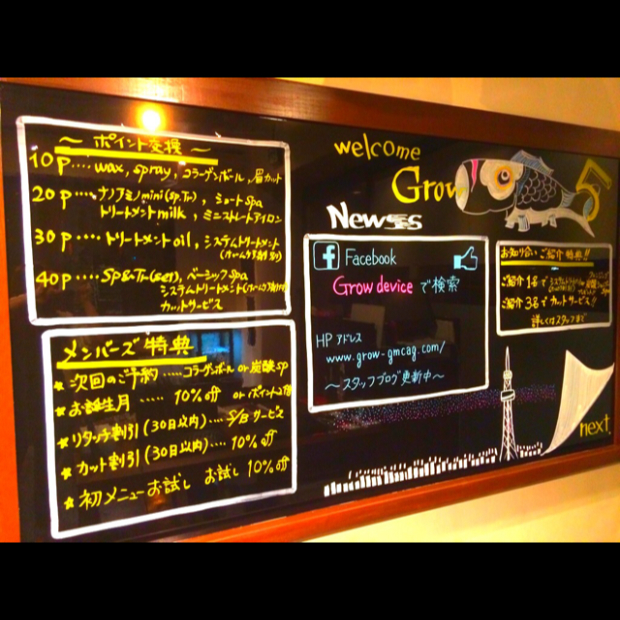 ～ ポイント交換 ～
10p‥‥ wax, spray, コラーゲンボール, 眉カット
20p‥‥ ナノアミノmini(sp.Tr), ショートspa
トリートメントmilk, ミニストレートアイロン
30p‥‥ トリートメントoil, システムトリートメント
40p‥‥ ベーシックspa
システムトリートメント
カットサービス
メンバーズ特典
★ 次回のご予約‥‥‥コラーゲンボール or 炭酸sp
★ お誕生月 ‥‥‥ 10%off or ポイント2倍
★ リタッチ割引(30日以内)‥‥ S/B サービス
★ カット割引(30日以内)‥‥ 10%off
★ 初メニューお試し お試し 10%off
welcome
Grow
5
News
Facebook
Grow device で検索
HP アドレス
www.grow-gmcag.com/
～スタッフブログ更新中～
お知り合いご紹介特典!!
ご紹介1名で
ご紹介3名でカットサービス!!
詳しくはスタッフまで
next